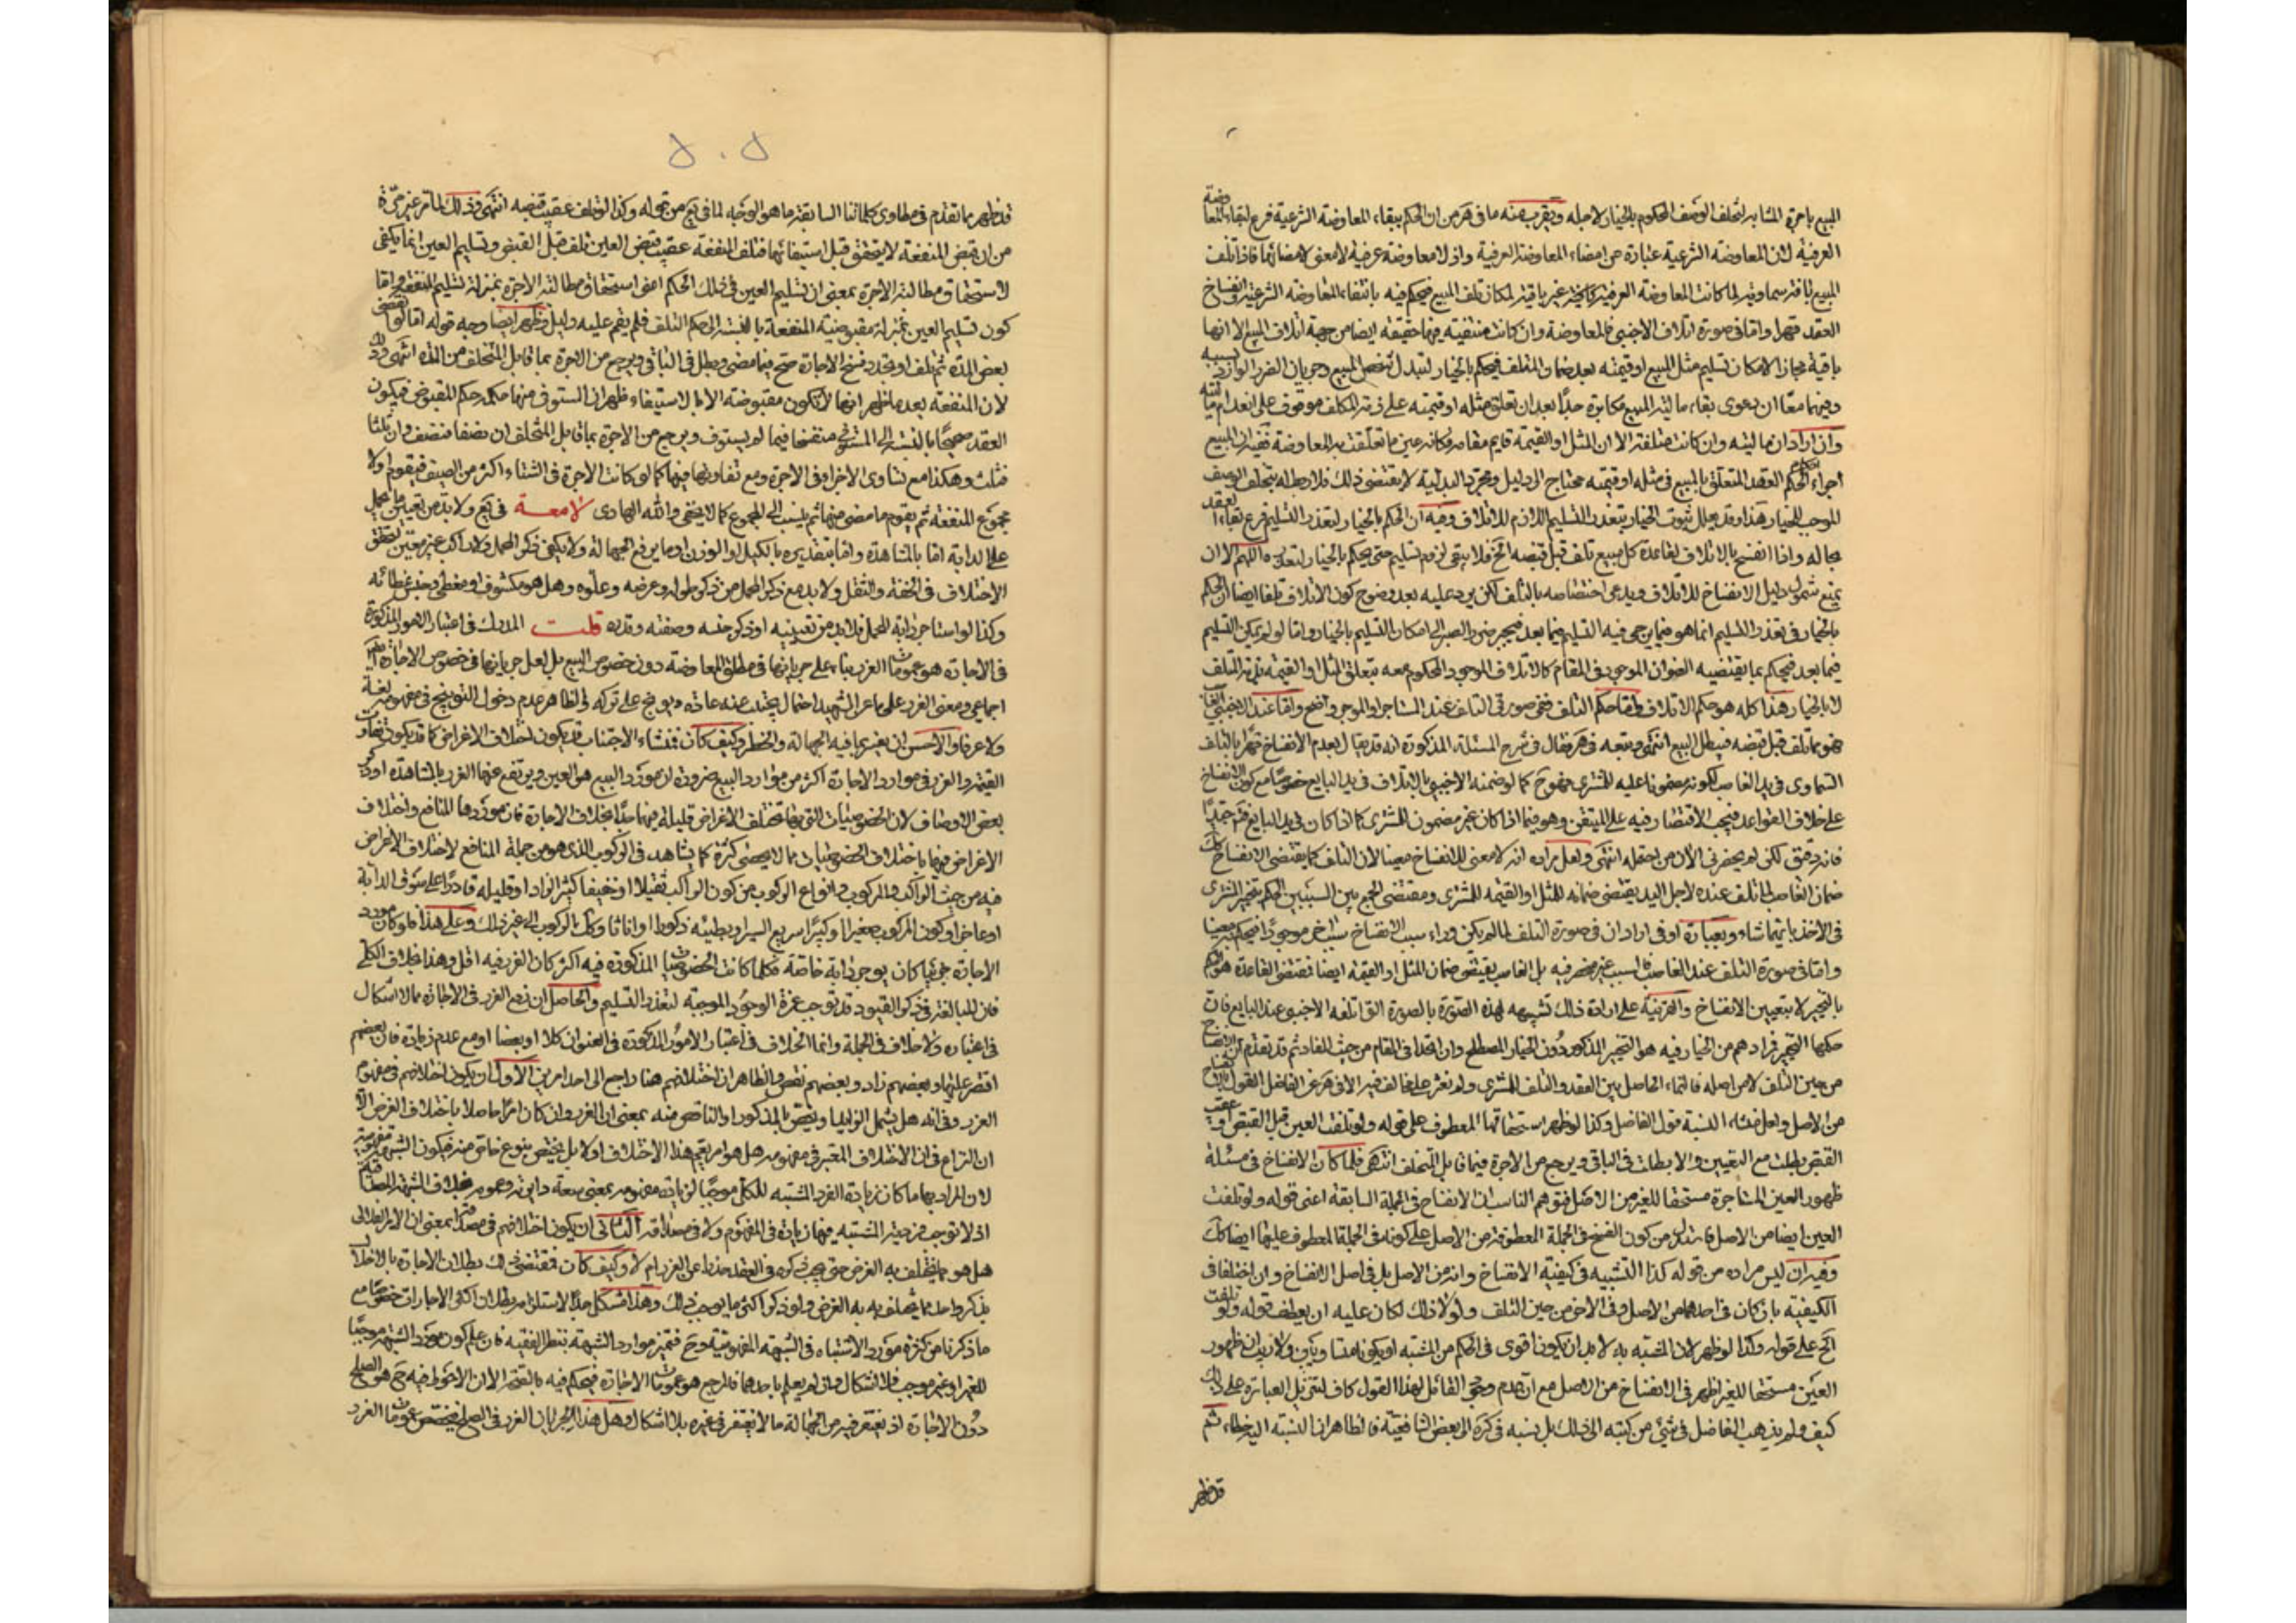 المبيع باجرة المشابه لتخلف الوصف المحكوم بالخيار لاجله ويقرب منه ما في هر من ان الحكم ببقاء المعاوضة الشرعية فرع لبقاء المعاوضة
العرفية لان المعاوضة الشرعية عبارة عن امضاء المعاوضة العرفية واذ لا معاوضة عرفية لا معنى لامضائها فاذا تلف
المبيع بافة سماوية لما كانت المعاوضة العرفية غير باقية لمكان تلف المبيع فيحكم فيه بانتفاء المعاوضة الشرعية وانفساخ
العقد قهرا واما في صورة اتلاف الاجنبي فالمعاوضة وان كانت منتفية فيها حقيقة ايضا من جهة اتلاف المبيع الا انها
باقية مجازا لامكان تسليم مثل المبيع او قيمته بعد ضمان المتلف فيحكم بالخيار لتبدل شخص المبيع وجريان الضرر الوارد بسببه
وفيهما معا ان دعوى بقاء مالية المبيع مكابرة جدا بعد ان تعلق مثله او قيمته على ذمة المكلف موقوف على انعدام ماليته
وان اراد ان ماليته وان كانت متلفة الا ان المثل او القيمة قايم مقامه فكانه عين ما تعلقت به المعاوضة ففيه ان المبيع
اجراء احكام العقد المتعلق بالمبيع في مثله او قيمته محتاج الى دليل ومجرد البدلية لا يقتضي ذلك فلا ربط له بتخلف الوصف
الموجب للخيار هذا وقد يعلل ثبوت الخيار بتعذر التسليم اللازم للاتلاف وفيه ان الحكم بالخيار لتعذر التسليم فرع بقاء العقد
بحاله واذا انفسخ بالاتلاف لقاعدة كل مبيع تلف قبل قبضه الخ فلا يبقى لزوم تسليم حتى يحكم بالخيار لتعذره اللهم الا ان
يمنع شمول دليل الانفساخ للاتلاف ويدعى اختصاصه بالتلف لكن يرد عليه بعد وضوح كون الاتلاف تلفا ايضا ان الحكم
بالخيار في تعذر التسليم انما هو فيما يرجى فيه التسليم فيما بعد فيجبر ضرر الصبر الى امكان التسليم بالخيار واما لو لم يمكن التسليم
فيما بعد فيحكم بما يقتضيه الضمان الموجود في المقام كالاتلاف الموجود المحكوم معه بتعلق المثل او القيمة بذمة المتلف
لا بالخيار هذا كله هو حكم الاتلاف واما حكم التلف ففي صورتي التلف عند المستاجر او الموجر واضح واما عند الاجنبي
فهو مما تلف قبل قبضه فيبطل البيع انتهى وتبعه في هر فقال في شرح المسئلة المذكورة انه قد يقال بعدم الانفساخ قهرا بالتلف
السماوي في يد الغاصب لكونه مضمونا عليه للمشتري فهو ح كما لو ضمنه الاجنبي بالاتلاف في يد البايع خصوصا مع كون الانفساخ
على خلاف القواعد فيجب الاقتصار فيه على المتيقن وهو فيما اذا كان غير مضمون للمشتري كما اذا كان في يد البايع فت جيدا
فانه دقيق لكن لم يحضرني الان من يحتمله انتهى ولعل مراده انه لا معنى للانفساخ معينا لان التلف كما يقتضي الانفساخ كك
ضمان الغاصب لما تلف عنده لاجل اليد يقتضي ضمانه للمثل او القيمة للمشتري ومقتضى الجمع بين السببين الحكم بتخير المشتري
في الاخذ بايهما شاء وبعبارة اوفى اراد ان في صورة التلف لما لم يكن وراء سبب الانفساخ سبب اخر موجودا فيحكم به معينا
واما في صورة التلف عند الغاصب فالسبب غير منحصر فيه بل الغاصب يقتضي ضمان المثل او القيمة ايضا فمقتضى القاعدة هو الحكم
بالتخيير لا بتعيين الانفساخ والقرينة على ارادة ذلك تشبيهه لهذه الصورة بالصورة التي اتلفه الاجنبي عند البايع فان
حكمها التخيير فمرادهم من الخيار فيه هو التخيير المذكور دون الخيار المصطلح وان اتحدا في المقام من حيث المفاد ثم قد تقدم ان الانفساخ ح
من حين التلف لا من اصله فالنماء الحاصل بين العقد والتلف للمشتري ولم نعثر على مخالف فيه الا في هر عن الفاضل القول بالانفساخ
من الاصل ولعل منشاء النسبة قول الفاضل وكذا لو ظهر استحقاقها المعطوف على قوله ولو تلفت العين قبل القبض او عقيب
القبض بطلت مع التعيين والا بطلت في الباقي ويرجع من الاجرة فيما قابل المتخلف انتهى فلما كان الانفساخ في مسئلة
ظهور العين المستاجرة مستحقا للغير من الاصل فتوهم الناسب ان الانفساخ في الجملة السابقة اعني قوله ولو تلفت
العين ايضا من الاصل فاستدل من كون الفسخ في الجملة المعطوفة من الاصل على كونه في الجملة المعطوف عليها ايضا كك
وفيه ان ليس مراده من قوله كذا التشبيه في كيفية الانفساخ وانه من الاصل بل في اصل الانفساخ وان اختلفا في
الكيفية بان كان في احدهما من الاصل وفي الاخر من حين التلف ولولا ذلك لكان عليه ان يعطف قوله ولو تلفت
الخ على قوله وكذا لو ظهر لان المشبه به لا بد ان يكون اقوى في الحكم من المشبه او يكونا متساويين ولا ريب ان ظهور
العين مستحقا للغير اظهر في الانفساخ من الاصل مع ان عدم وجود القائل بهذا القول كاف لتنزيل العبارة على ذلك
كيف ولم يذهب الفاضل في شيء من كتبه الى ذلك بل نسبه في كره الى بعض الشافعية فالظاهر ان النسبة اليه خطاء ثم
قد ظهر
٥٠٥
قد ظهر مما تقدم في مطاوي كلماتنا السابقة ما هو الوجه لما في يع من قوله وكذا لو تلف عقيب قبضه انتهى وذلك لما مر غير مرة
من ان قبض المنفعة لا يتحقق قبل استيفائها فتلف المنفعة عقيب قبض العين تلف قبل القبض وتسليم العين انما يكفي
لاستحقاق مطالبة الاجرة بمعنى ان تسليم العين في ذلك الحكم اعني استحقاق مطالبة الاجرة بمنزلة تسليم المنفعة واما
كون تسليم العين بمنزلة مقبوضية المنفعة بالنسبة الى حكم التلف فلم يقم عليه دليل وظهر ايضا وجه قوله اما لو انقضى
بعض المدة ثم تلف او تجدد فسخ الاجارة صح فيما مضى وبطل في الباقي ويرجع من الاجرة بما قابل المتخلف من المدة انتهى وذلك
لان المنفعة بعد ما ظهر انها لا تكون مقبوضة الا بالاستيفاء ظهر ان المستوفى منها حكمه حكم المقبوض فيكون
العقد صحيحا بالنسبة الى المستوفى منفسخا فيما لم يستوف ويرجع من الاجرة بما قابل المتخلف ان نصفا فنصف وان ثلثا
فثلث وهكذا مع تساوي الاجزاء في الاجرة ومع تفاوتها فيها كما لو كانت الاجرة في الشتاء اكثر من الصيف فيقوم اولا
مجموع المنفعة ثم يقوم ما مضى منها ثم ينسب الى المجموع كما لا يخفى والله الهادي لامعة في يع ولا بد من تعيين ما يحمل
على الدابة اما بالمشاهدة واما بتقديره بالكيل او الوزن او ما يرفع الجهالة ولا يكفي ذكر المحمل ولا راكب غير معين لتحقق
الاختلاف في الخفة والثقل ولا بد مع ذكر المحمل من ذكر طوله وعرضه وعلوه وهل هو مكشوف او مغطى وجنس غطائه
وكذا لو استاجر دابة للحمل فلا بد من تعيينه او ذكر جنسه وصفته وقدره قلت المدرك في اعتبار الامور المذكورة
في الاجارة هو عمومات الغرر بناء على جريانها في مطلق المعاوضة دون خصوص البيع بل لعل جريانها في خصوص الاجارة
اجماعي ومعنى الغرر على ما عن الشهيد احتمال يجتنب عنه عادة ويوبخ على تركه والظاهر عدم دخول التوبيخ في مفهومه لغة
ولا عرفا والاحسن ان يعبر بما فيه الجهالة والخطر وكيف كان فمنشاء الاجتناب قد يكون اختلاف الاغراض كما قد يكون تفاوت
القيمة والغرر في موارد الاجارة اكثر من موارد البيع ضرورة ان مورد البيع هو العين ويرتفع عنها الغرر بالمشاهدة او ذكر
بعض الاوصاف لان الخصوصيات التي بها تختلف الاغراض قليلة فيها جدا بخلاف الاجارة فان موردها المنافع واختلاف
الاغراض فيها باختلاف الخصوصيات مما لا يحصى كثرة كما يشاهد في الركوب الذي هو من جملة المنافع لاختلاف الاغراض
فيه من حيث الراكب والمركوب وانواع الركوب من كون الراكب ثقيلا او خفيفا كثير الزاد او قليله قادرا على سوق الدابة
او عاجزا وكون المركوب صغيرا او كبيرا سريع السير او بطيئه ذكورا او اناثا وكك الركوب الى غير ذلك وعلى هذا فلو كان مورد
الاجارة جزئيا كان يوجر دابة خاصة فكلما كانت الخصوصيات المذكورة فيه اكثر كان الغرر فيه اقل وهذا بخلاف الكلي
فان المبالغة في ذكر القيود قد توجب عزة الوجود الموجبة لتعذر التسليم والحاصل ان رفع الغرر في الاجارة مما لا اشكال
في اعتباره ولا خلاف في الجملة وانما الخلاف في اعتبار الامور المذكورة في العنوان كلا او بعضا او مع عدم زيادة فان بعضهم
اقتصر عليها وبعضهم زاد وبعضهم نقص والظاهر ان اختلافهم هنا راجع الى احد امرين الاول ان يكون اختلافهم في مفهوم
الغرر وفي انه هل يشمل الزايد او يختص بالمذكور او الناقص منه بمعنى ان الغرر وان كان امرا حاصلا باختلاف الغرض الا
ان النزاع في ان الاختلاف المعتبر في مفهومه هل هو امر يعم هذا الاختلاف او لا بل يختص بنوع خاص منه فيكون الشبهة مفهومية
لان المراد بها ما كان زيادة الفرد المشتبه للكلي موجبا لزيادة مفهومه بمعنى سعة دايرته وعمومه بخلاف الشبهة المصداقية
اذ لا توجب فردية المشتبه فيها زيادة في المفهوم ولا في مصداقه الثاني ان يكون اختلافهم في مصداقه بمعنى ان الامر الفلاني
هل هو مما يختلف به الغرض حتى يجب ذكره في العقد حذرا عن الغرر ام لا وكيف كان فمقتضى ذلك بطلان الاجارة بالاخلال
بذكر واحد مما يختلف به الغرض ولو ذكر اكثر ما يوجب ذلك وهذا مشكل جدا لاستلزامه بطلان اكثر الاجارات خصوصا مع
ما ذكرنا من كثرة مورد الاشتباه في الشبهة المفهومية وح فتميز موارد الشبهة بنظر الفقيه فان علم كون مورد الشبهة موجبا
للغرر او غير موجب فلا اشكال وان لم يعلم باحدهما فالمرجع هو عمومات الاجارة فيحكم فيه بالصحة الا ان الاحوط فيه ح هو الصلح
دون الاجارة اذ يغتفر فيه من الجهالة ما لا يغتفر في غيره بلا اشكال وهل هذا لجريان الغرر في الصلح فيختص عمومات الغرر